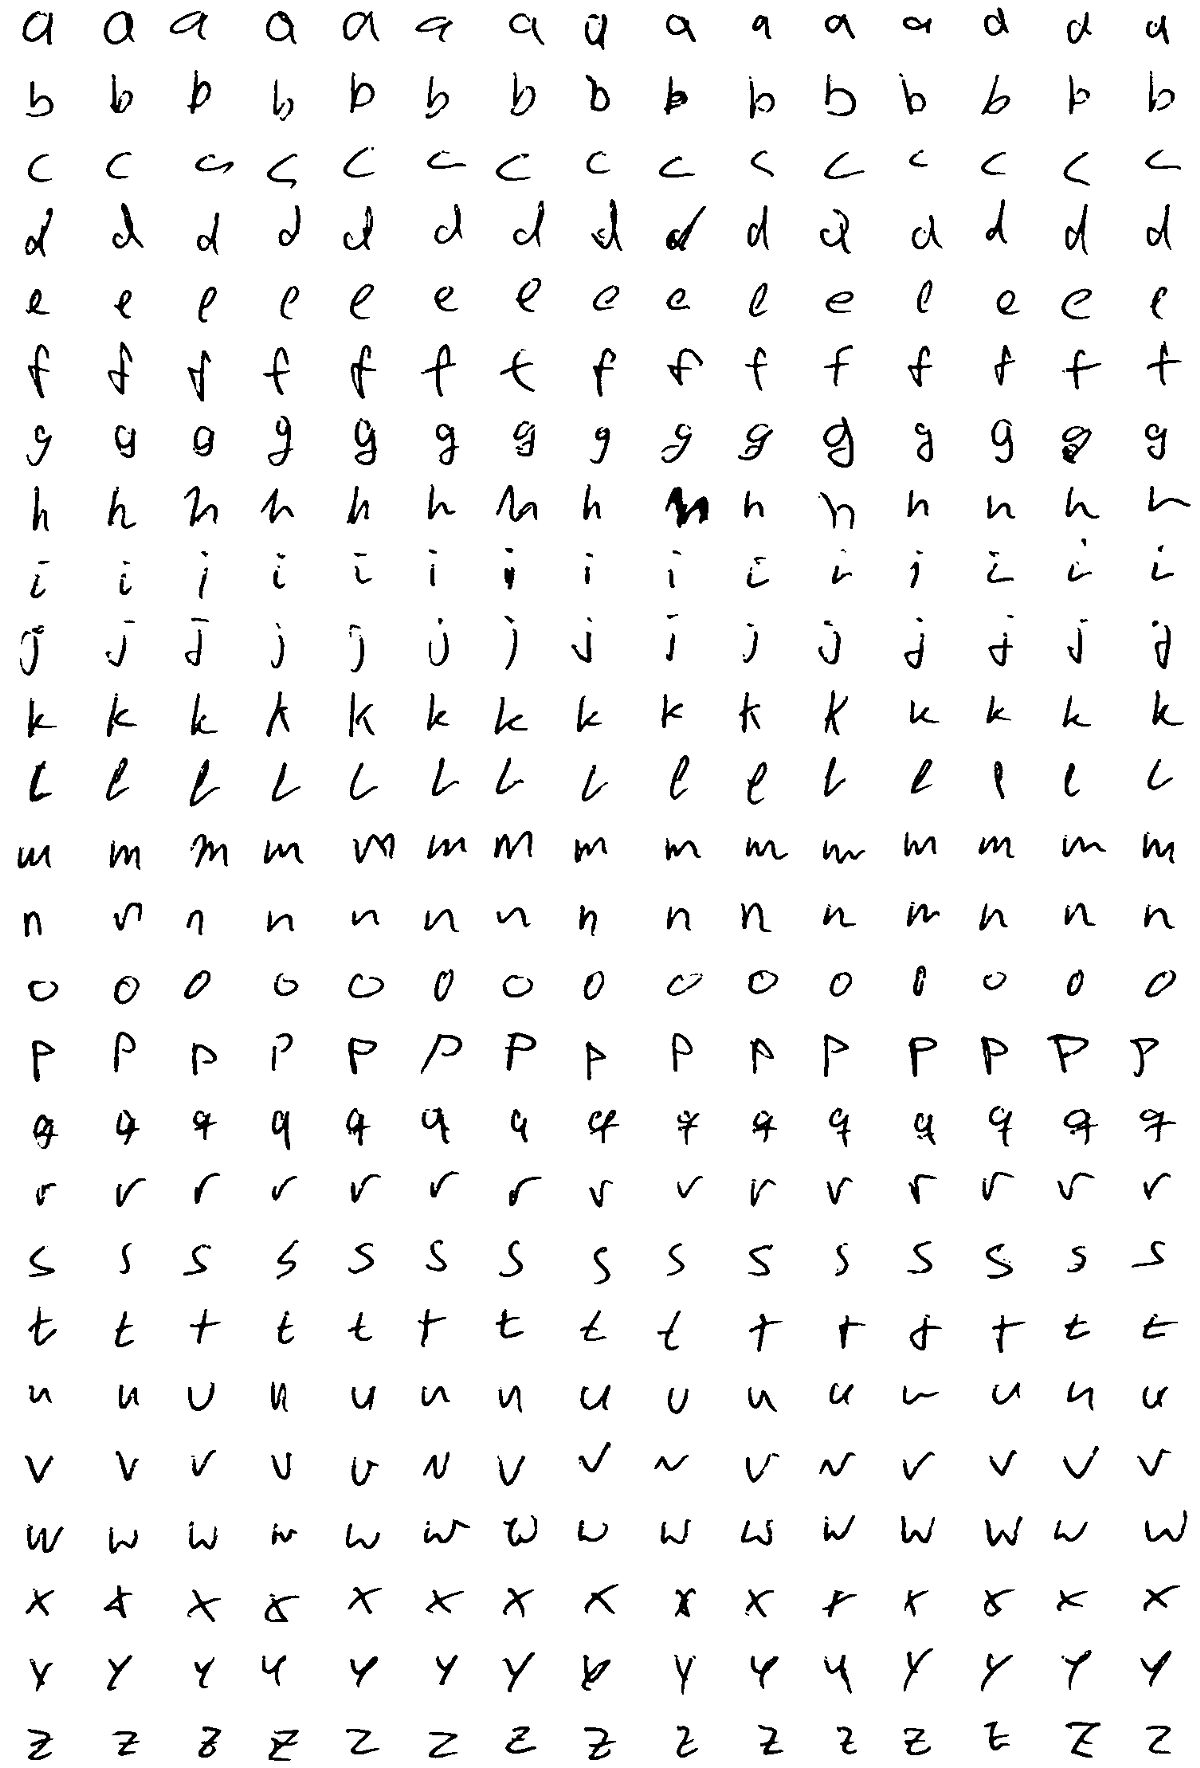 a a a a a a a a a a a a a a a
b b b b b b b b b b b b b b b
c c c c c c c c c c c c c c c
d d d d d d d d d d d d d d d
e e e e e e e e e e e e e e e
f f f f f f f f f f f f f f f
g g g g g g g g g g g g g g g
h h h h h h h h h h h h h h h
i i i i i i i i i i i i i i i
j j j j j j j j j j j j j j j
k k k k k k k k k k k k k k k
l l l l l l l l l l l l l l l
m m m m m m m m m m m m m m m
n n n n n n n n n n n n n n n
o o o o o o o o o o o o o o o
p p p p p p p p p p p p p p p
q q q q q q q q q q q q q q q
r r r r r r r r r r r r r r r
s s s s s s s s s s s s s s s
t t t t t t t t t t t t t t t
u u u u u u u u u u u u u u u
v v v v v v v v v v v v v v v
w w w w w w w w w w w w w w w
x x x x x x x x x x x x x x x
y y y y y y y y y y y y y y y
z z z z z z z z z z z z z z z